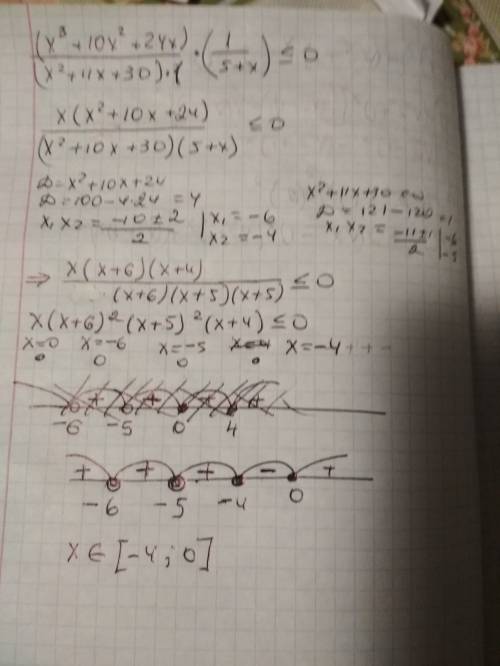 (x³ + 10x² + 24x) / (x² + 11x + 30) · 1 · (1 / (5+x)) ≤ 0
x(x² + 10x + 24) / (x² + 10x + 30)(5+x) ≤ 0
D = x² + 10x + 24
D = 100 - 4·24 = 4
x₁ x₂ = (-10 ± 2) / 2 | x₁ = -6
x₂ = -4
x² + 11x + 30 = 0
D = 121 - 120 = 1
x₁ x₂ = (-11 ± 1) / 2 | -6
-5
⇒ x(x+6)(x+4) / (x+6)(x+5)(x+5) ≤ 0
x(x+6)²(x+5)²(x+4) ≤ 0
x=0 x=-6 x=-5 x=-4 + + -
-6 -5 0 4
+ + + - +
-6 -5 -4 0
x ∈ [-4; 0]